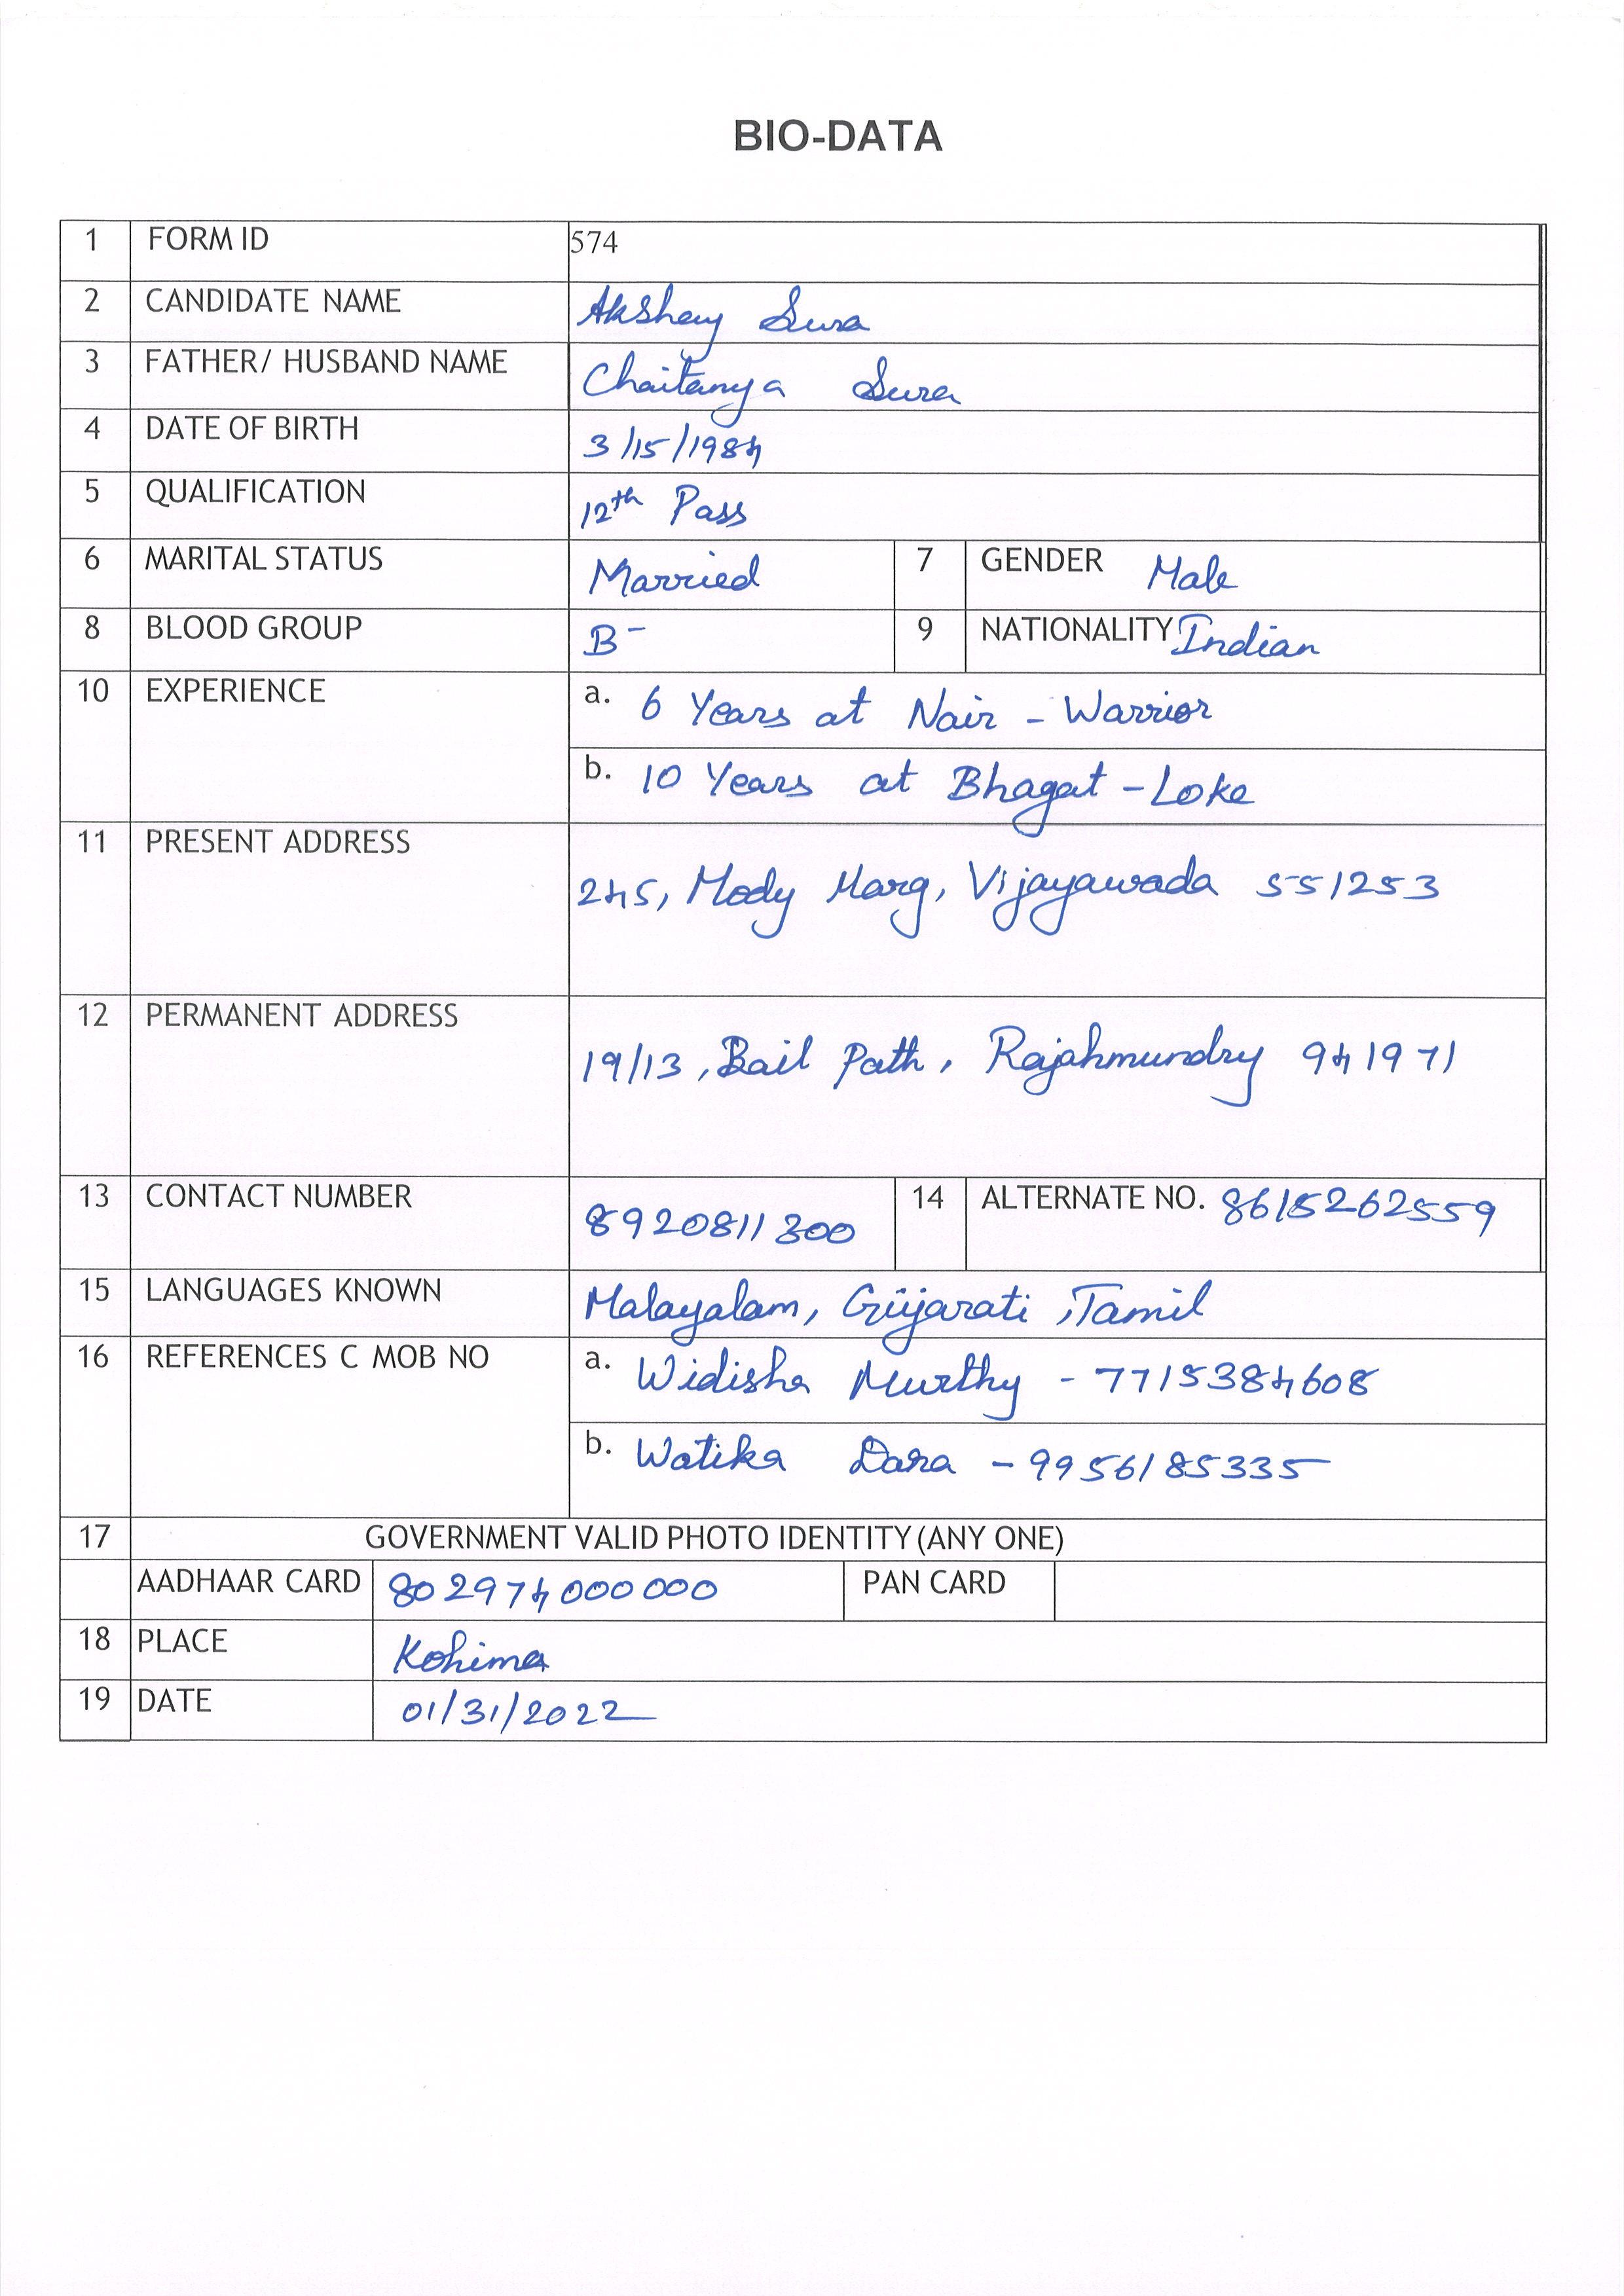 BIO-DATA
1 FORM ID 574
2 CANDIDATE NAME Akshay Sura
3 FATHER/ HUSBAND NAME Chaitanya Sura
4 DATE OF BIRTH 3/15/1984
5 QUALIFICATION 12th Pass
6 MARITAL STATUS Married 7 GENDER Male
8 BLOOD GROUP B- 9 NATIONALITY Indian
10 EXPERIENCE a. 6 Years at Nair - Warrior
b. 10 Years at Bhagat - Loke
11 PRESENT ADDRESS 245, Mody Marg, Vijayawada 551253
12 PERMANENT ADDRESS 19/13, Bail Path, Rajahmundry 941971
13 CONTACT NUMBER 8920811300 14 ALTERNATE NO. 8615262559
15 LANGUAGES KNOWN Malayalam, Gujarati, Tamil
16 REFERENCES C MOB NO a. Widisha Murthy - 7715384608
b. Watika Dara - 9956185335
17 GOVERNMENT VALID PHOTO IDENTITY (ANY ONE)
AADHAAR CARD 802974000000 PAN CARD
18 PLACE Kohima
19 DATE 01/31/2022